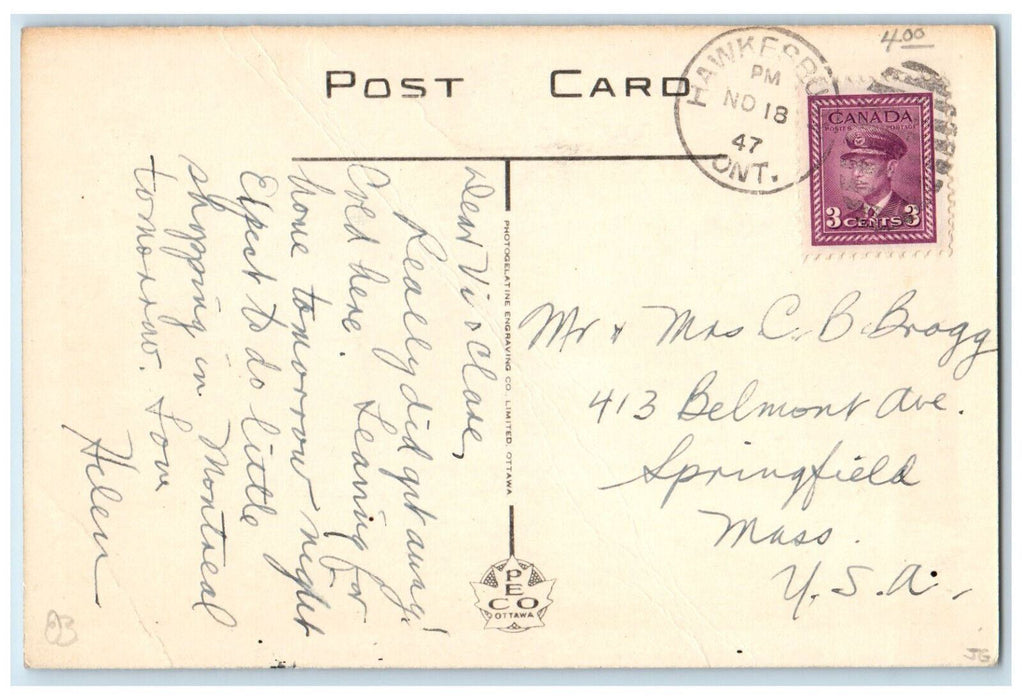 POST CARD
HAWKESBU
PM
NO 18
47
ONT.
4.00
CANADA
POSTES POSTAGE
3 CENTS 3
Dear Vi & Clare,
Really did get away!
here. Leaving for
home tomorrow night
Expect to do little
shopping in Montreal
tomorrow. Love
Helen
PHOTOGELATINE ENGRAVING CO. LIMITED. OTTAWA
PECO
OTTAWA
Mr & Mrs C. B. Bragg
413 Belmont Ave.
Springfield
Mass.
U.S.A.
JG